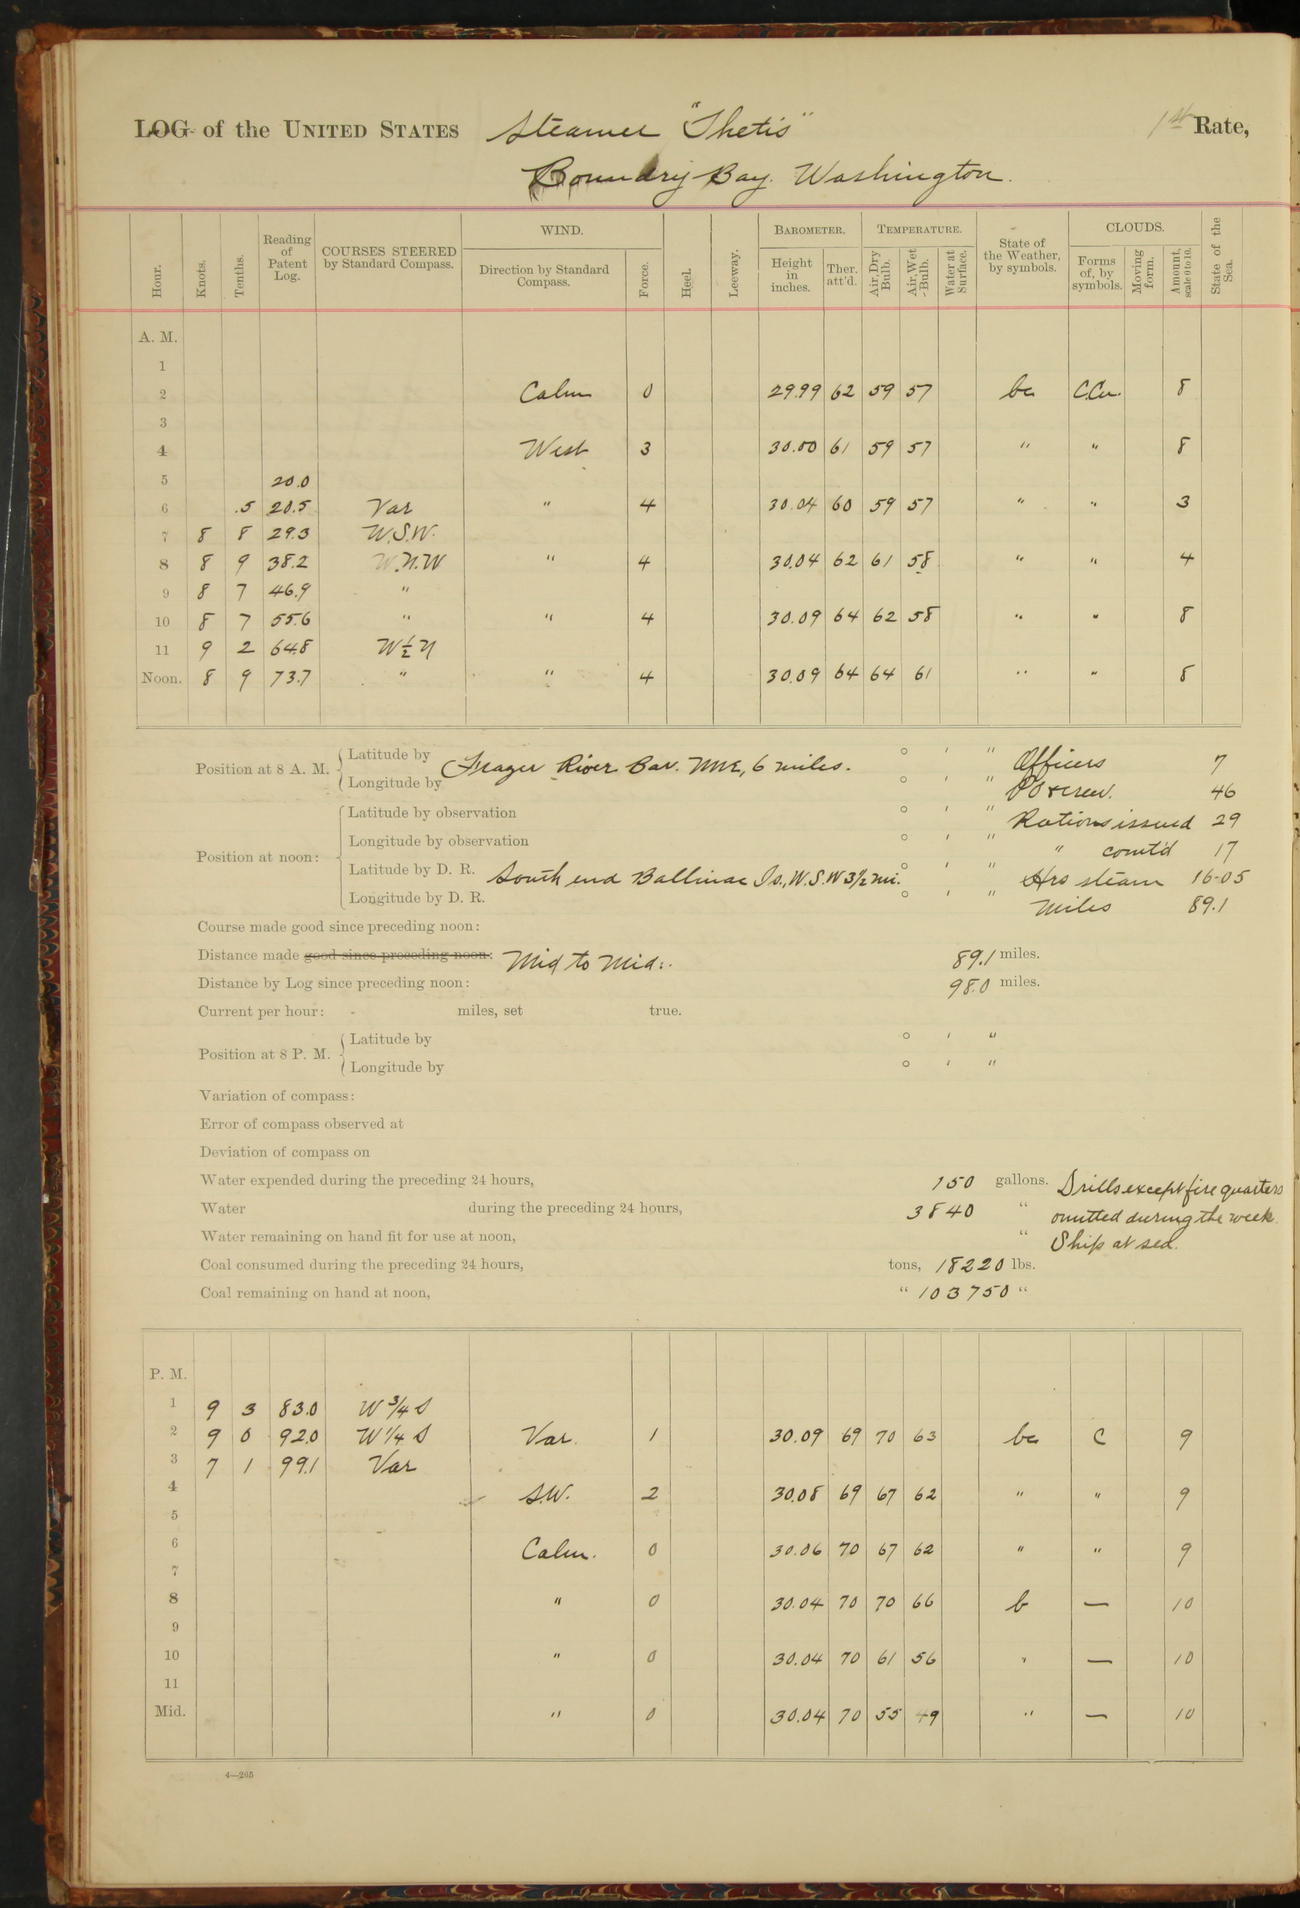 LOG of the UNITED STATES Steamer "Thetis" 1st Rate,
Boundry Bay. Washington.
Hour. Knots. Tenths. Reading of Patent Log. COURSES STEERED by Standard Compass. WIND. Direction by Standard Compass. Force. Heel. Leeway. BAROMETER. Height in inches. Ther. att'd. TEMPERATURE. Air, Dry Bulb. Air, Wet Bulb. Water at Surface. State of the Weather, by symbols. CLOUDS. Forms of, by symbols. Moving form. Amount, scale 0 to 10. State of the Sea.
A. M.
1
2 Calm 0 29.99 62 59 57 bc C.Cu. 8
3
4 West 3 30.00 61 59 57 " " 8
5 20.0
6 .5 20.5 Var " 4 30.04 60 59 57 " " 3
7 8 8 29.3 W.S.W.
8 8 9 38.2 W.N.W " 4 30.04 62 61 58 " " 4
9 8 7 46.9 "
10 8 7 55.6 " " 4 30.09 64 62 58 " " 8
11 9 2 64.8 W½N
Noon. 8 9 73.7 " " 4 30.09 64 64 61 " " 8
Position at 8 A. M. Latitude by Frazer River Bar. NNE, 6 miles. ° ' " Officers 7
Longitude by ° ' " PO & crew. 46
Position at noon: Latitude by observation ° ' " Rations issued 29
Longitude by observation ° ' " " comt'd 17
Latitude by D. R. South end Ballinac Is., W.S.W 3½ mi. ° ' " Hrs steam 16-05
Longitude by D. R. ° ' " Miles 89.1
Course made good since preceding noon:
Distance made good since preceding noon: Mid to Mid:. 89.1 miles.
Distance by Log since preceding noon: 98.0 miles.
Current per hour: - miles, set true.
Position at 8 P. M. Latitude by ° ' "
Longitude by ° ' "
Variation of compass:
Error of compass observed at
Deviation of compass on
Water expended during the preceding 24 hours, 150 gallons. Drills except fire quarters
Water during the preceding 24 hours, 3840 " omitted during the week.
Water remaining on hand fit for use at noon, " Ship at sea.
Coal consumed during the preceding 24 hours, tons, 18220 lbs.
Coal remaining on hand at noon, " 103750 "
P. M.
1 9 3 83.0 W ¾ S
2 9 0 92.0 W ¼ S Var. 1 30.09 69 70 63 bc C 9
3 7 1 99.1 Var
4 S.W. 2 30.08 69 67 62 " " 9
5
6 Calm. 0 30.06 70 67 62 " " 9
7
8 " 0 30.04 70 70 66 b — 10
9
10 " 0 30.04 70 61 56 " — 10
11
Mid. " 0 30.04 70 55 49 " — 10
4—205